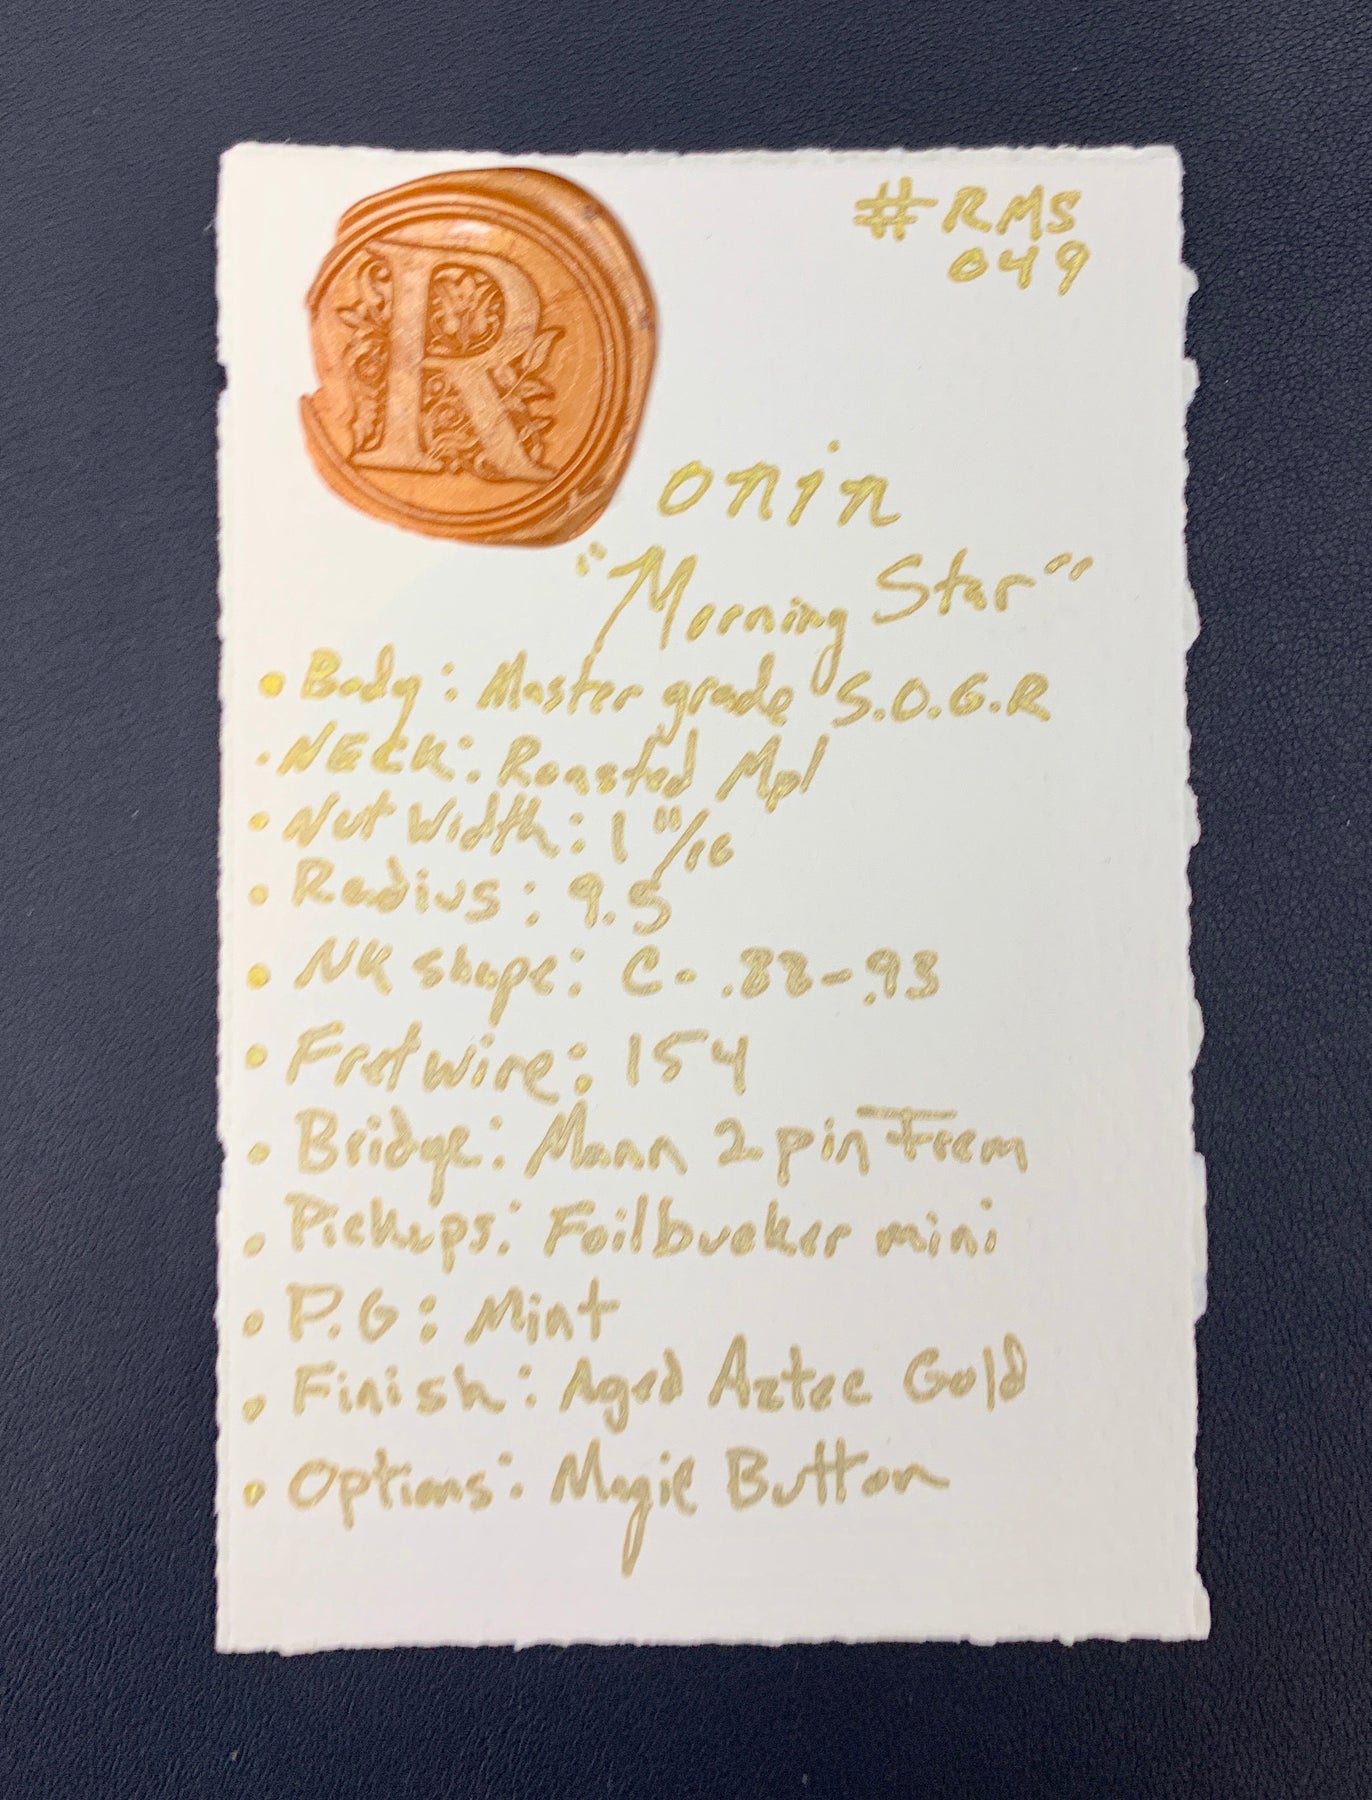 #RMS
049
Ronin
"Morning Star"
• Body: Master grade S.O.G.R
• NECK: Roasted Mpl
• Nut Width: 1 11/16
• Radius: 9.5
• NK shape: C- .88-.93
• Fretwire: 154
• Bridge: Mann 2 pin Trem
• Pickups: Foilbucker mini
• P.G: Mint
• Finish: Aged Aztec Gold
• Options: Magic Button